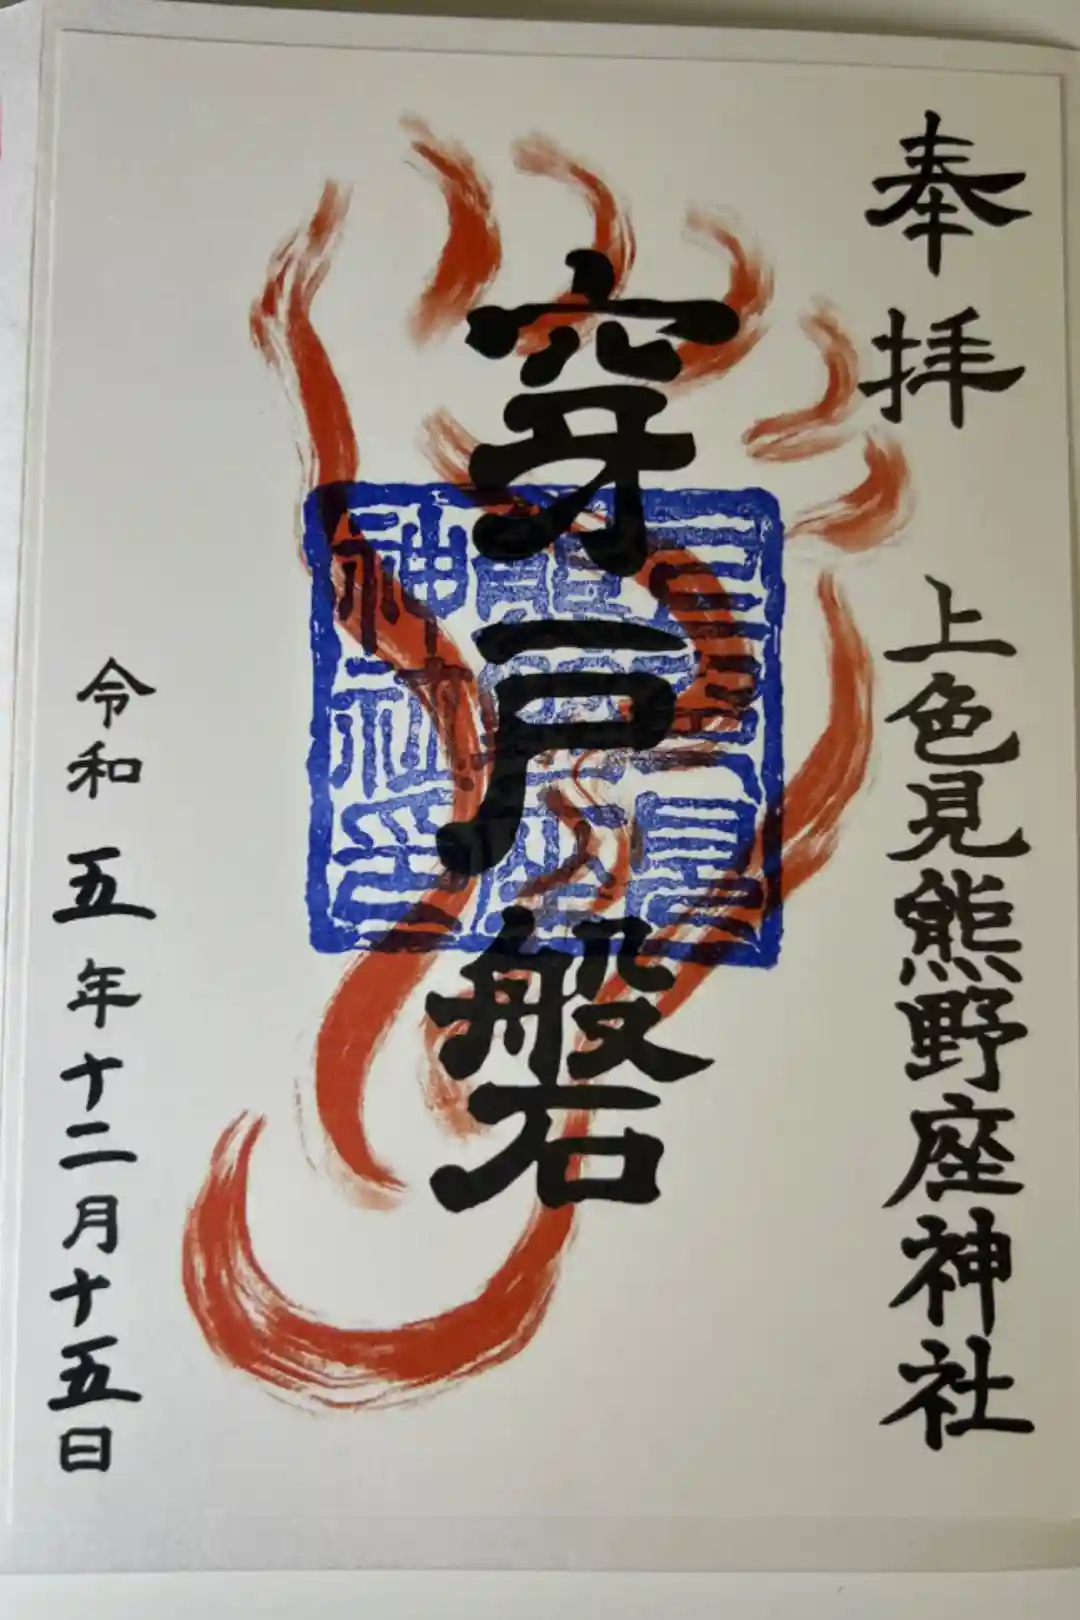 奉拝
上色見熊野座神社
穿戸磐
上色見
熊野座
神社神璽
令和五年十二月十五日